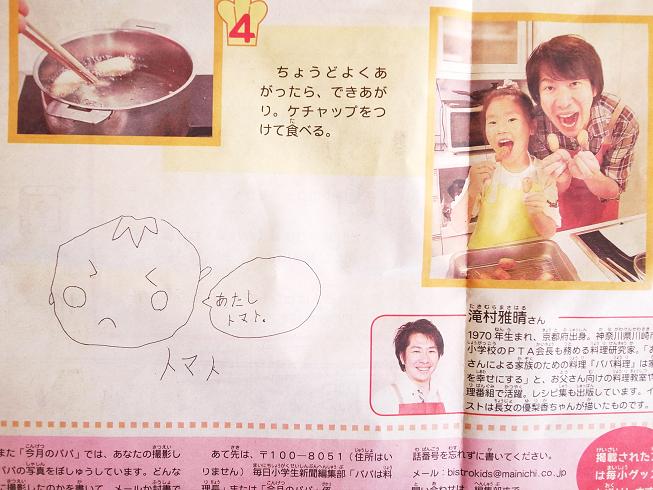 4
ちょうどよくあ
がったら、できあが
り。ケチャップをつ
けて食べる。
あたし
トマト。
トマト
滝村雅晴さん
1970年生まれ、京都府出身。神奈川県川崎市
小学校のPTA会長も務める料理研究家。「お
さんによる家族のための料理「パパ料理」は家
を幸せにする」と、お父さん向けの料理教室や
理番組で活躍。レシピ集も出版しています。イ
ストは長女の優梨香ちゃんが描いたものです。
また「今月のパパ」では、あなたの撮影し
パパの写真をぼしゅうしています。どんな
あて先は、〒100-8051(住所はい
りません)毎日小学生新聞編集部「パパは料
理長」または「今月のパパ」係
話番号を忘れずに書いてください。
メール:bistrokids@mainichi.co.jp
掲載された
は毎小グッ